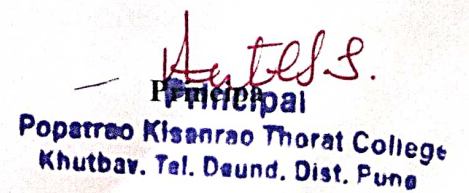 Principal
Principal
Popatrao Kisanrao Thorat College
Khutbav. Tal. Daund. Dist. Pune